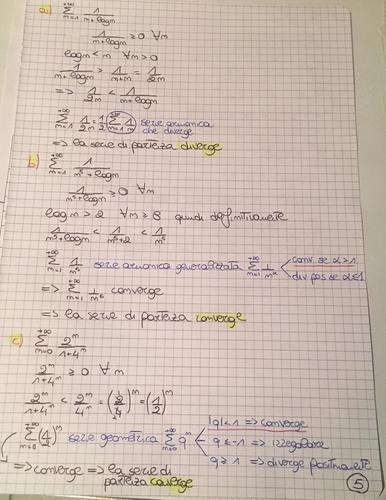 a) +∞ Σ m=1 1/(m+logm)
1/(m+logm) ≥ 0 ∀m
logm < m ∀m>0
1/(m+logm) > 1/(m+m) = 1/2m
=> 1/2m < 1/(m+logm)
+∞ Σ m=1 1/2m = 1/2 +∞ Σ m=1 1/m serie armonica
che diverge
=> la serie di partenza diverge
b) +∞ Σ m=1 1/(m⁵+logm)
1/(m⁵+logm) ≥ 0 ∀m
logm > 2 ∀m ≥ 8 quindi definitivamente
1/(m⁵+logm) < 1/(m⁵+2) < 1/m⁵
+∞ Σ m=1 1/m⁵ serie armonica generalizzata +∞ Σ m=1 1/m^α conv se α>1
div pos se α≤1
=> +∞ Σ m=1 converge
=> la serie di partenza converge
c) +∞ Σ m=0 2^m/(1+4^m)
2^m/(1+4^m) ≥ 0 ∀m
2^m/(1+4^m) < 2^m/4^m = (2/4)^m = (1/2)^m
|q|<1 => converge
+∞ Σ (1/2)^m serie geometrica +∞ Σ m=0 q^m q≤-1 => irregolare
q≥1 => diverge positivamente
=> converge => la serie di
partenza converge
5